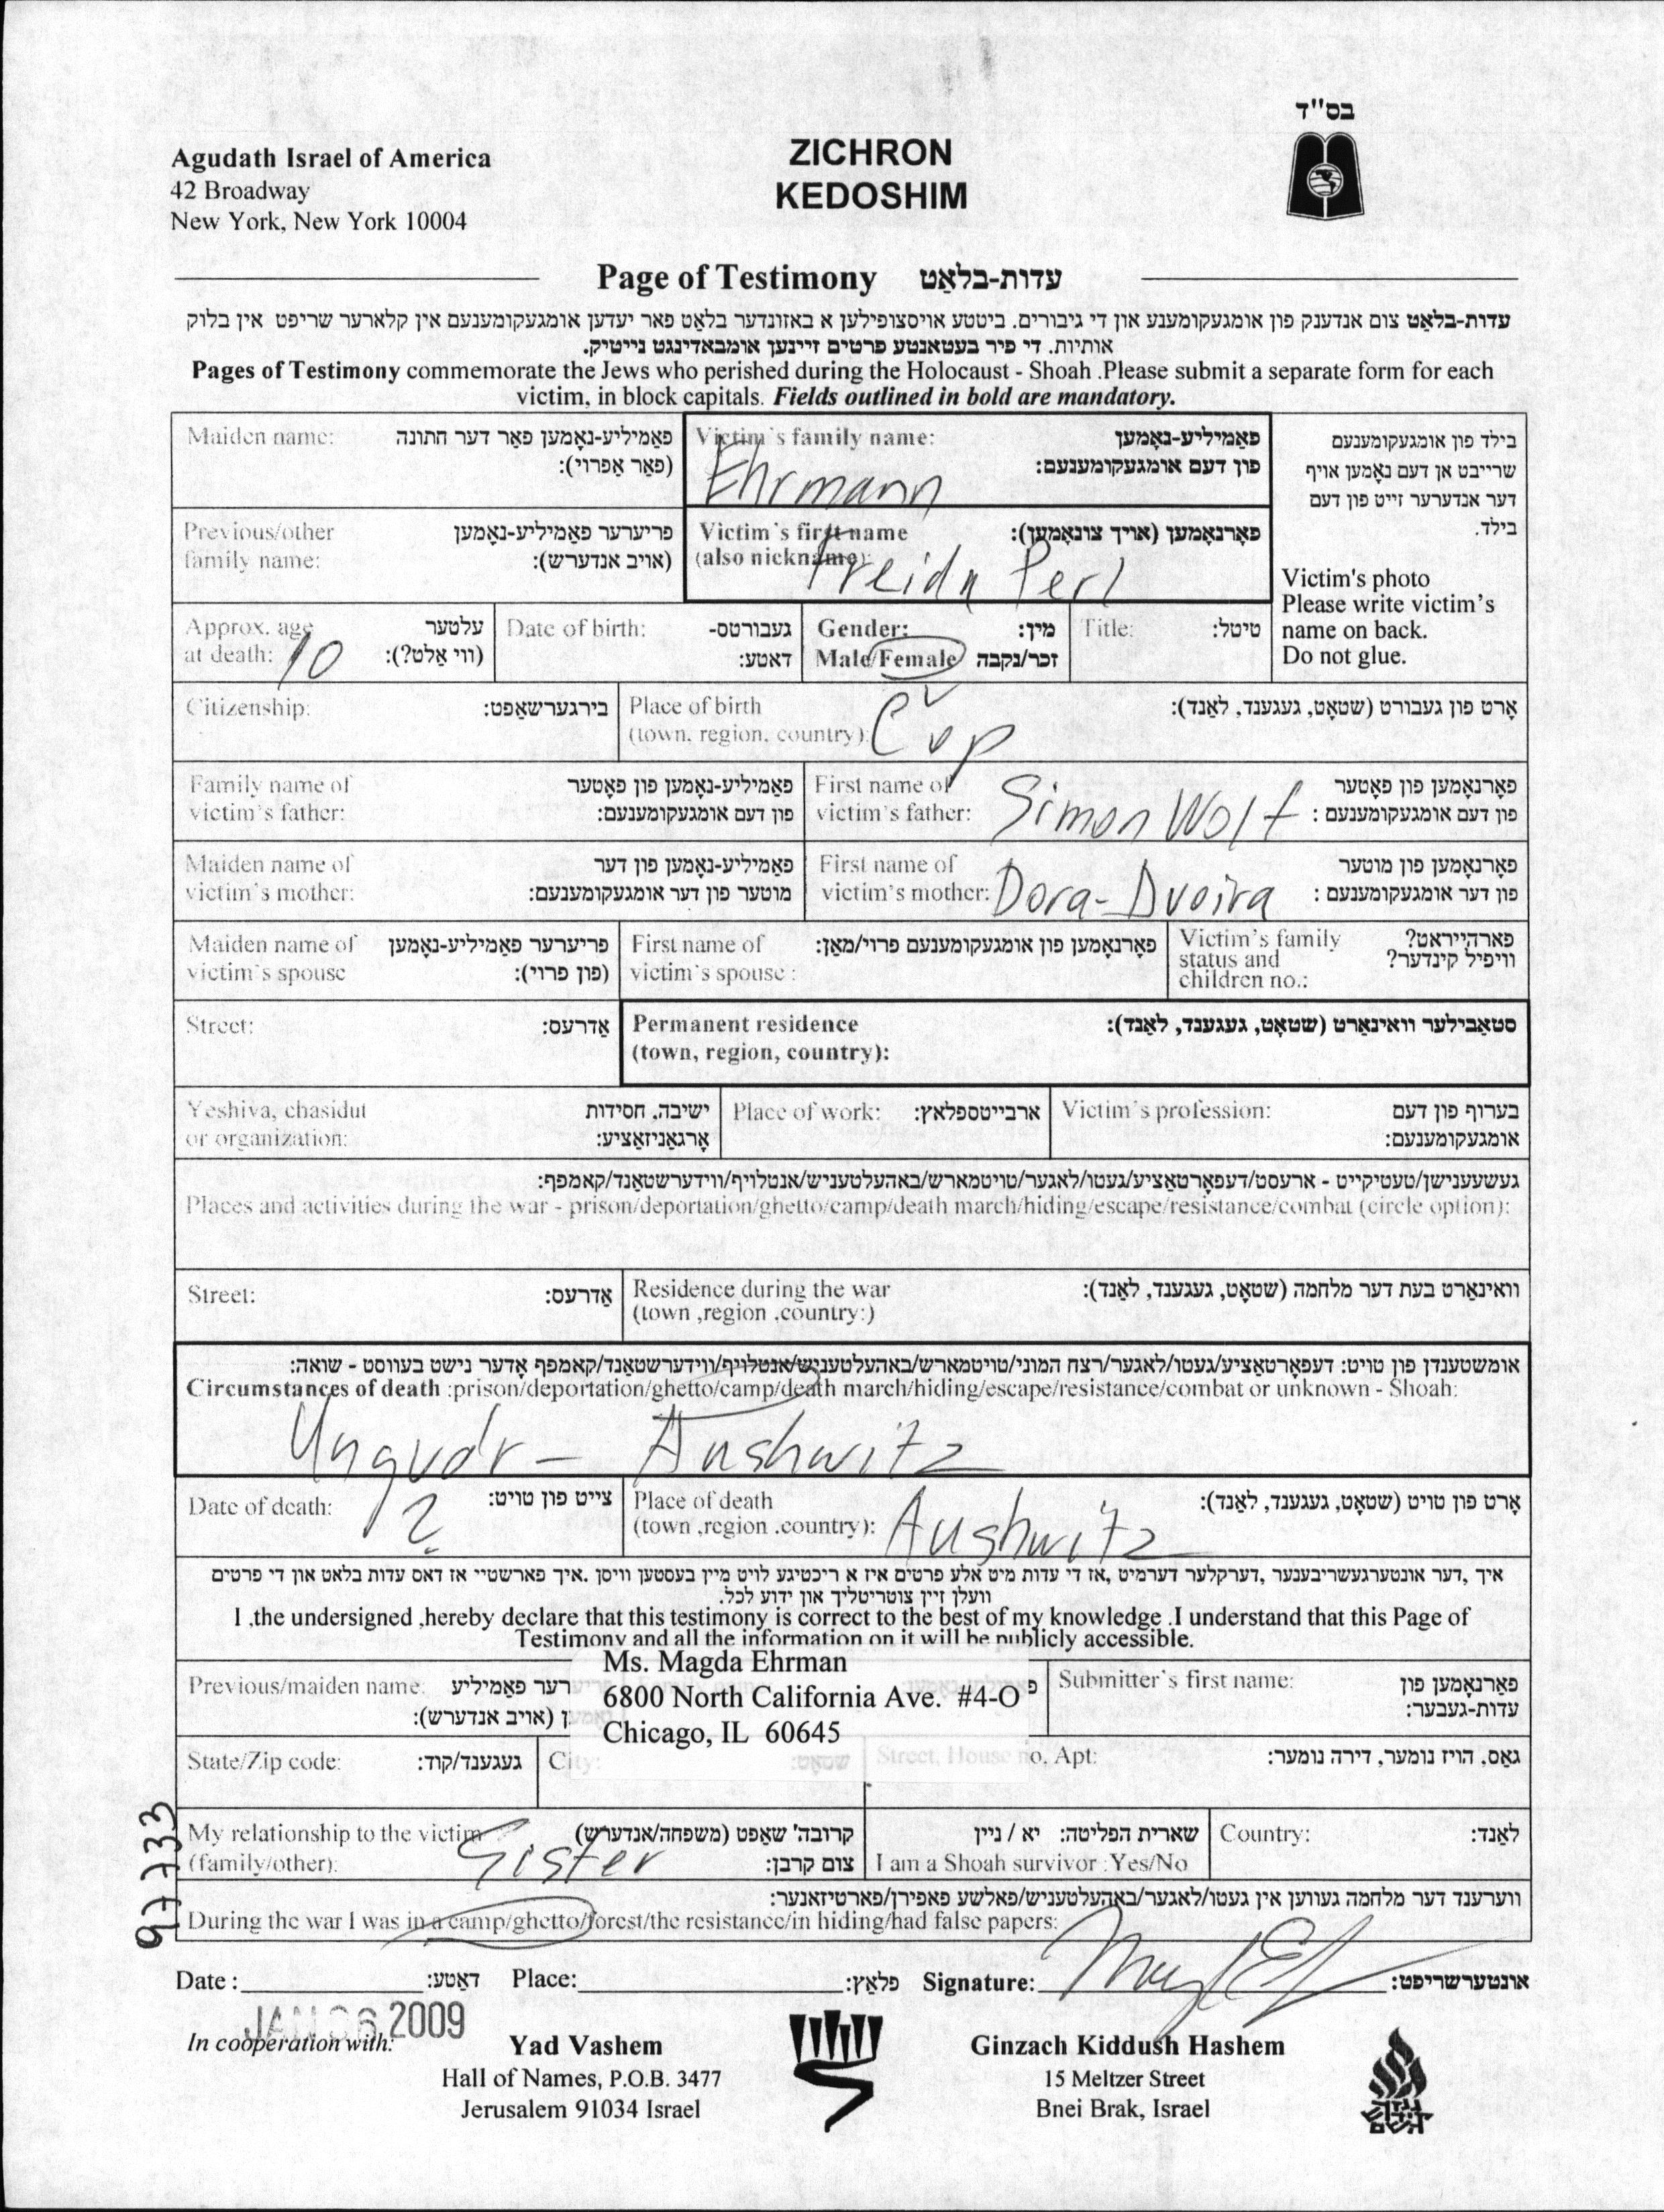 בס"ד
Agudath Israel of America
42 Broadway
New York, New York 10004
ZICHRON
KEDOSHIM
Page of Testimony עדות-בלאַט
עדות-בלאַט צום אנדענק פון אומגעקומענע און די גיבורים. ביטטע אויסצופילען א באזונדער בלאַט פאר יעדען אומגעקומענעם אין קלארער שריפט אין בלוק
אותיות. די פיר בעטאנטע פרטים זיינען אומבאדינגט נייטיק.
Pages of Testimony commemorate the Jews who perished during the Holocaust - Shoah .Please submit a separate form for each
victim, in block capitals. Fields outlined in bold are mandatory.
Maiden name: פאַמיליע-נאָמען פאַר דער חתונה
(פאַר אַפרוי):
Victim's family name: פאַמיליע-נאָמען
פון דעם אומגעקומענעם:
Ehrmann
בילד פון אומגעקומענעם
שרייבט אן דעם נאָמען אויף
דער אנדערער זייט פון דעם
בילד.
Previous/other פריערער פאַמיליע-נאָמען
family name: (אויב אנדערש):
Victim's first name פאָרנאָמען (אויך צונאָמען):
(also nickname):
Freida Perl
Victim's photo
Please write victim's
name on back.
Do not glue.
Approx. age עלטער
at death: 10 (ווי אַלט?):
Date of birth: געבורטס-
דאַטע:
Gender: מין:
Male/Female זכר/נקבה
Title: טיטל:
Citizenship: בירגערשאַפט:
Place of birth אָרט פון געבורט (שטאָט, געגענד, לאַנד):
(town, region, country):
Čop
Family name of פאַמיליע-נאָמען פון פאָטער
victim's father: פון דעם אומגעקומענעם:
First name of פאָרנאָמען פון פאָטער
victim's father: Simon Wolf פון דעם אומגעקומענעם :
Maiden name of פאַמיליע-נאָמען פון דער
victim's mother: מוטער פון דער אומגעקומענעם:
First name of פאָרנאָמען פון מוטער
victim's mother: Dora-Dvoira פון דער אומגעקומענעם :
Maiden name of פריערער פאַמיליע-נאָמען
victim's spouse (פון פרוי):
First name of פאָרנאָמען פון אומגעקומענעם פרוי/מאַן:
victim's spouse :
Victim's family פארהייראט?
status and וויפיל קינדער?
children no.:
Street: אַדרעס:
Permanent residence סטאַבילער וואוינאַרט (שטאָט, געגענד, לאַנד):
(town, region, country):
Yeshiva, chasidut ישיבה, חסידות
or organization: אָרגאַניזאַציע:
Place of work: ארבייטספלאץ:
Victim's profession: בערוף פון דעם
אומגעקומענעם:
געשעענישן/טעטיקייט - ארעסט/דעפאָרטאַציע/געטו/לאגער/טויטמארש/באהעלטעניש/אנטלויף/ווידערשטאַנד/קאמפף:
Places and activities during the war - prison/deportation/ghetto/camp/death march/hiding/escape/resistance/combat (circle option):
Street: אַדרעס:
Residence during the war וואוינאַרט בעת דער מלחמה (שטאָט, געגענד, לאַנד):
(town ,region .country:)
אומשטענדן פון טויט: דעפאָרטאַציע/געטו/לאגער/רצח המוני/טויטמארש/באהעלטעניש/אנטלויף/ווידערשטאַנד/קאמפף אָדער נישט בעוווסט - שואה:
Circumstances of death :prison/deportation/ghetto/camp/death march/hiding/escape/resistance/combat or unknown - Shoah:
Ungvdr - Aushwitz
Date of death: ? צייט פון טויט:
Place of death אָרט פון טויט (שטאָט, געגענד, לאַנד):
(town ,region .country): Aushwitz
איך ,דער אונטערגעשריבענער ,דערקלער דערמיט ,אז די עדות מיט אלע פרטים איז א ריכטיגע לויט מיין בעסטען וויסן .איך פארשטיי אז דאס עדות בלאט און די פרטים
וועלן זיין צוטריטליך און ידוע לכל.
I ,the undersigned ,hereby declare that this testimony is correct to the best of my knowledge .I understand that this Page of
Testimony and all the information on it will be publicly accessible.
Previous/maiden name:
(אויב אנדערש):
Ms. Magda Ehrman
6800 North California Ave. #4-O
Chicago, IL 60645
Submitter's first name: פאָרנאָמען פון
עדות-געבער:
State/Zip code: געגענד/קוד:
City: שטאָט:
Street, House no. Apt: גאַס, הויז נומער, דירה נומער:
My relationship to the victim קרובה' שאַפט (משפחה/אנדערש)
(family/other): Sister צום קרבן:
שארית הפליטה: יא / ניין
I am a Shoah survivor :Yes/No
Country: לאַנד:
ווערענד דער מלחמה געווען אין געטו/לאגער/באַהעלטעניש/פאלשע פאפירן/פארטיזאנער:
During the war I was in a camp/ghetto/forest/the resistance/in hiding/had false papers:
97733
Date : דאַטע: Place: פלאַץ: Signature: אונטערשריפט:
JAN 06 2009
In cooperation with:
Yad Vashem
Hall of Names, P.O.B. 3477
Jerusalem 91034 Israel
Ginzach Kiddush Hashem
15 Meltzer Street
Bnei Brak, Israel